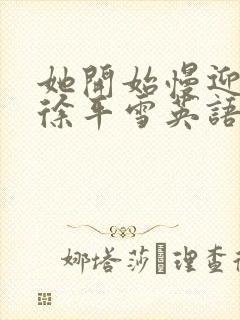 她開始慢迎
徐平雪英語
娜塔莎 理查